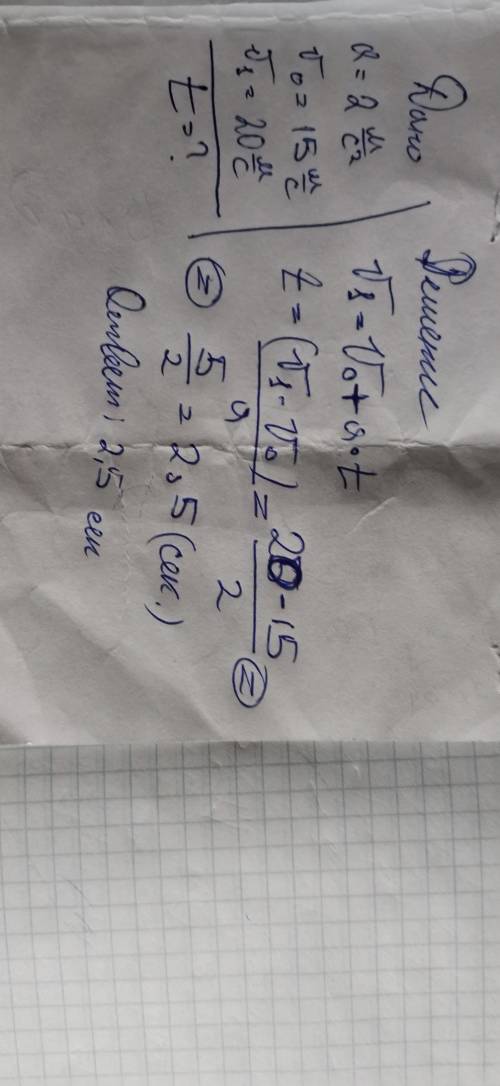 Дано
a = 2 м/с²
v₀ = 15 м/с
v₁ = 20 м/с
t = ?
Решение
v₁ = v₀ + a·t
t = (v₁ - v₀)/a = (20 - 15)/2 =
= 5/2 = 2,5 (сек.)
Ответ: 2,5 сек